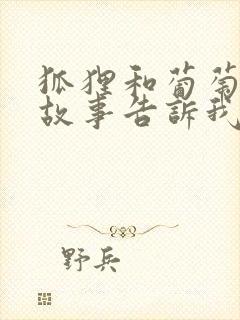 狐狸和葡萄
故事告訴我
野兵